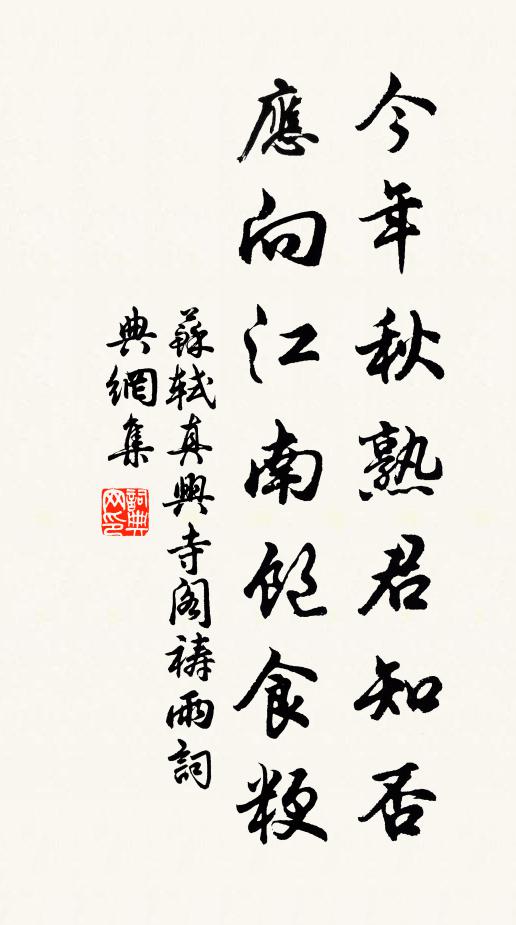 今年秋熟君知否
應向江南飽食粳
蘇軾真興寺閣禱雨詞
典網集
詞典網印